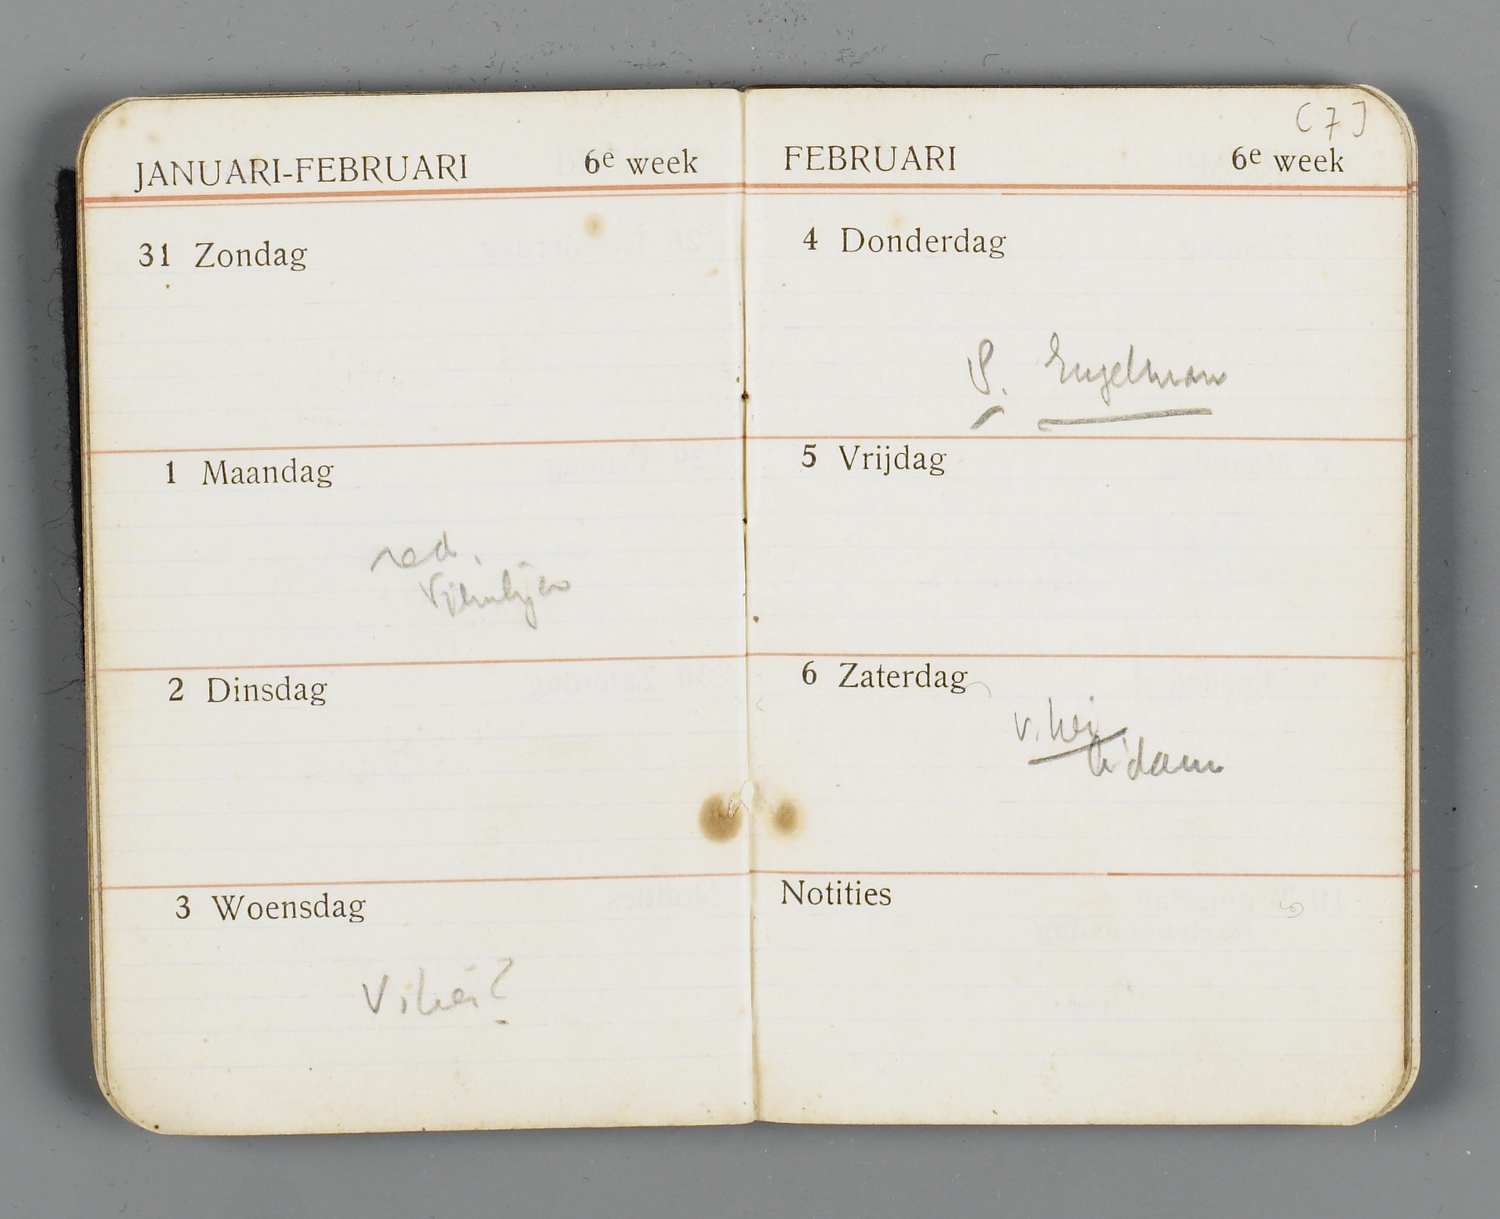 JANUARI-FEBRUARI 6e week
31 Zondag
1 Maandag
red.
2 Dinsdag
3 Woensdag
[7]
FEBRUARI 6e week
4 Donderdag
P. Engelman
5 Vrijdag
6 Zaterdag
v. Hei
A'dam
Notities